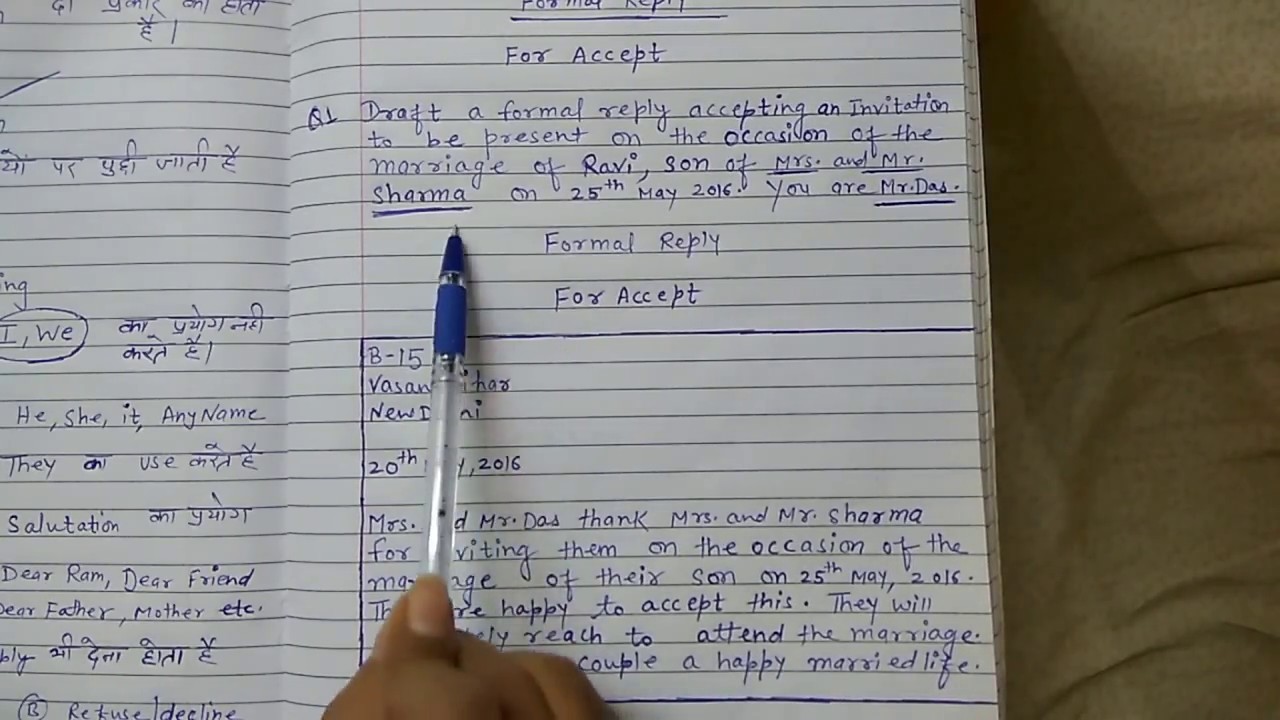 दो प्रकार का होता
है।
यो पर पुछी जाती है
ing
I, We का प्रयोग नही
करते है।
He, She, it, Any Name
They का use करते है
Salutation का प्रयोग
Dear Ram, Dear Friend
Dear Father, Mother etc.
भी देना होता है
(B) Refuse/decline
Formal Reply
For Accept
Q1 Draft a formal reply accepting an Invitation
to be present on the occasion of the
marriage of Ravi, son of Mrs. and Mr.
Sharma on 25th May 2016. You are Mr.Das.
Formal Reply
For Accept
B-15
Vasan ihar
New D
20th 2016
Mrs. d Mr. Das thank Mrs. and Mr. Sharma
for viting them on the occasion of the
ma age of their son on 25th May, 2016.
re happy to accept this. They will
ely reach to attend the marriage.
couple a happy married life.